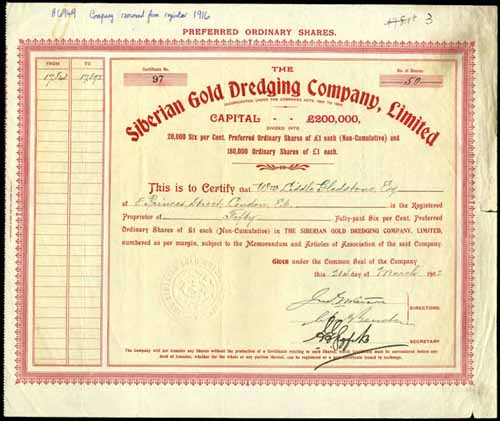 Company removed from register 1916
3
PREFERRED ORDINARY SHARES.
FROM TO
Certificate No.
97
THE
No. of Shares
50
Siberian Gold Dredging Company, Limited
INCORPORATED UNDER THE COMPANIES ACTS, 1862 TO 1900.
CAPITAL - - £200,000,
DIVIDED INTO
20,000 Six per Cent. Preferred Ordinary Shares of £1 each (Non-Cumulative) and
180,000 Ordinary Shares of £1 each.
This is to Certify that Wm Liddle Gladstone, Esq
of 5 Princes Street, London, E.C. is the Registered
Proprietor of Fifty Fully-paid Six per Cent. Preferred
Ordinary Shares of £1 each (Non-Cumulative) in THE SIBERIAN GOLD DREDGING COMPANY, LIMITED,
numbered as per margin, subject to the Memorandum and Articles of Association of the said Company
Given under the Common Seal of the Company
this day of March 190
DIRECTORS.
SECRETARY
The Company will not transfer any Shares without the production of a Certificate relating to such Shares, which Certificate must be surrendered before any
deed of transfer, whether for the whole or any portion thereof, can be registered or a new Certificate issued in exchange.